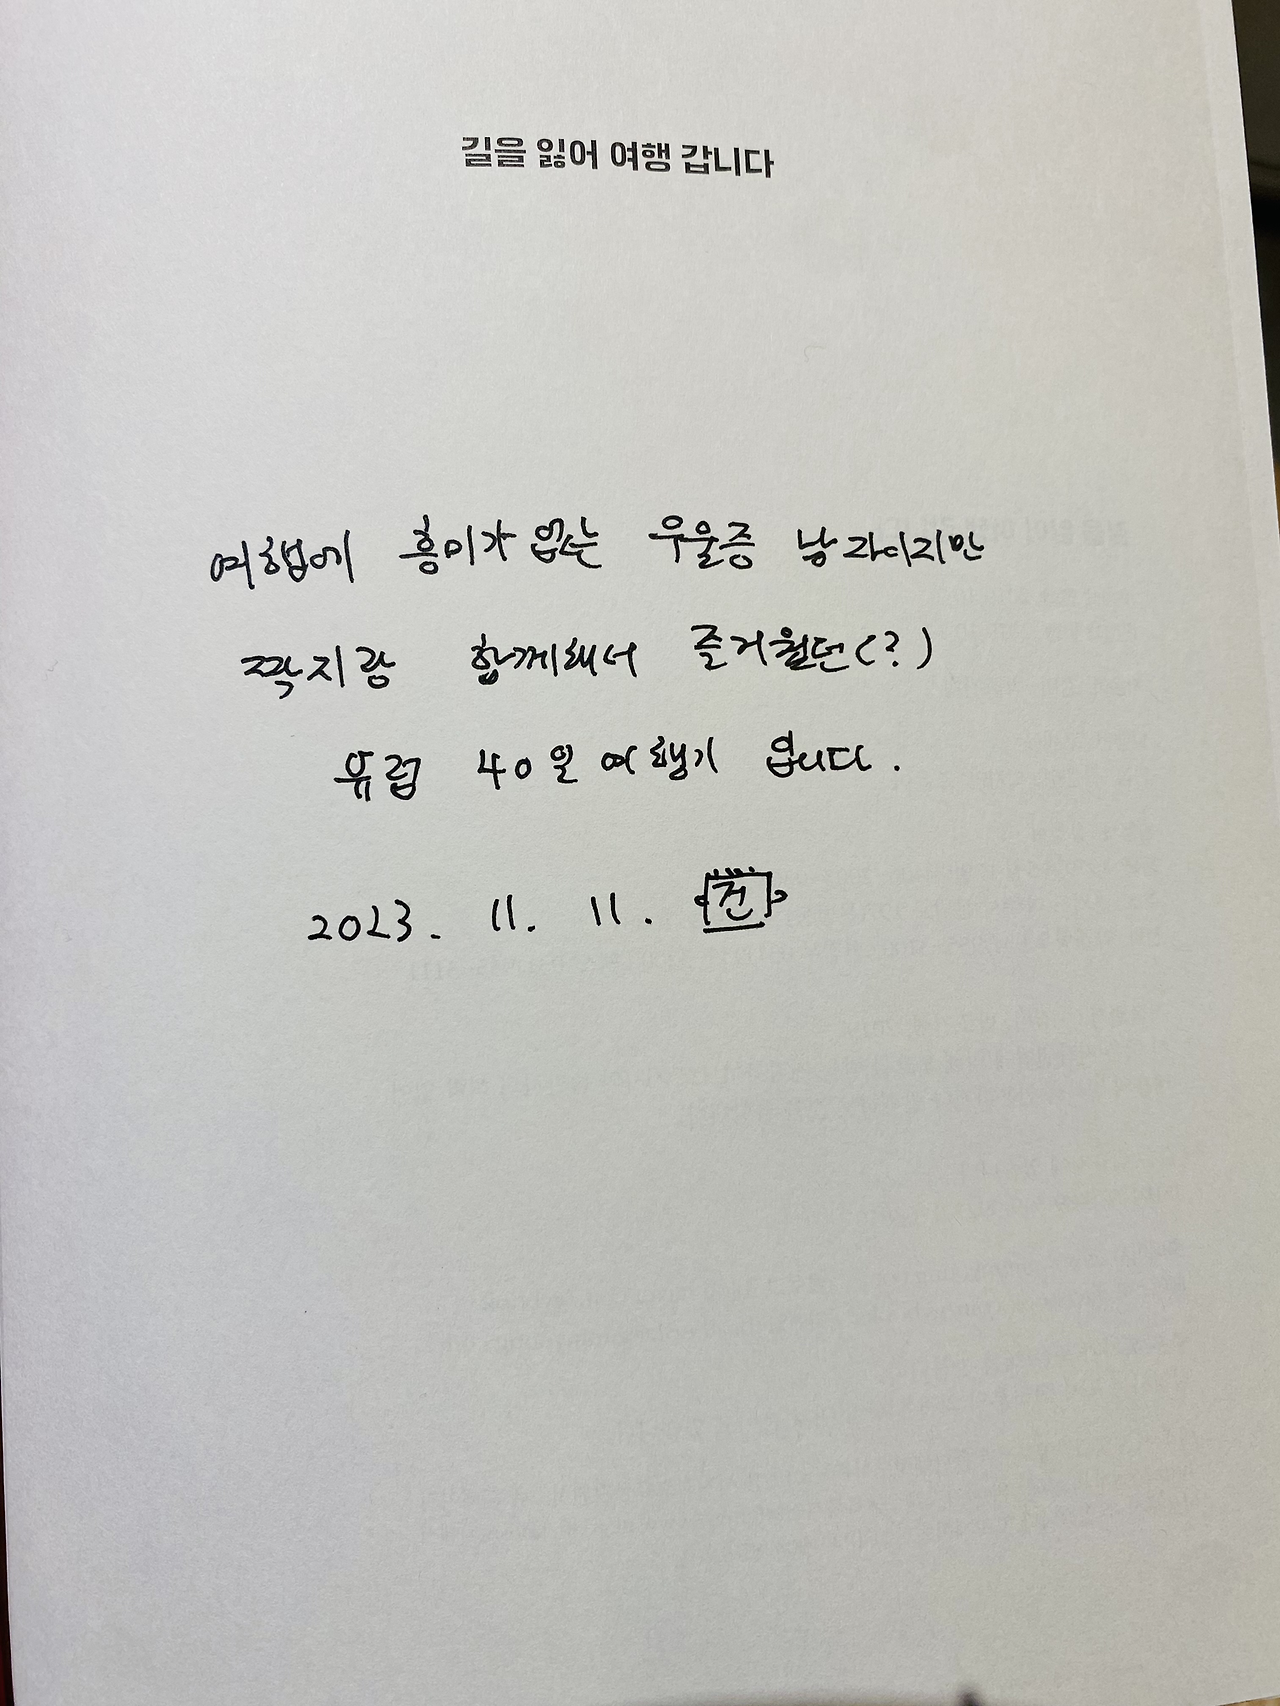 길을 잃어 여행 갑니다
여행에 흥미가 없는 우울증 남자이지만
짝지랑 함께해서 즐거웠던(?)
유럽 40일 여행기 입니다.
2023. 11. 11. 건